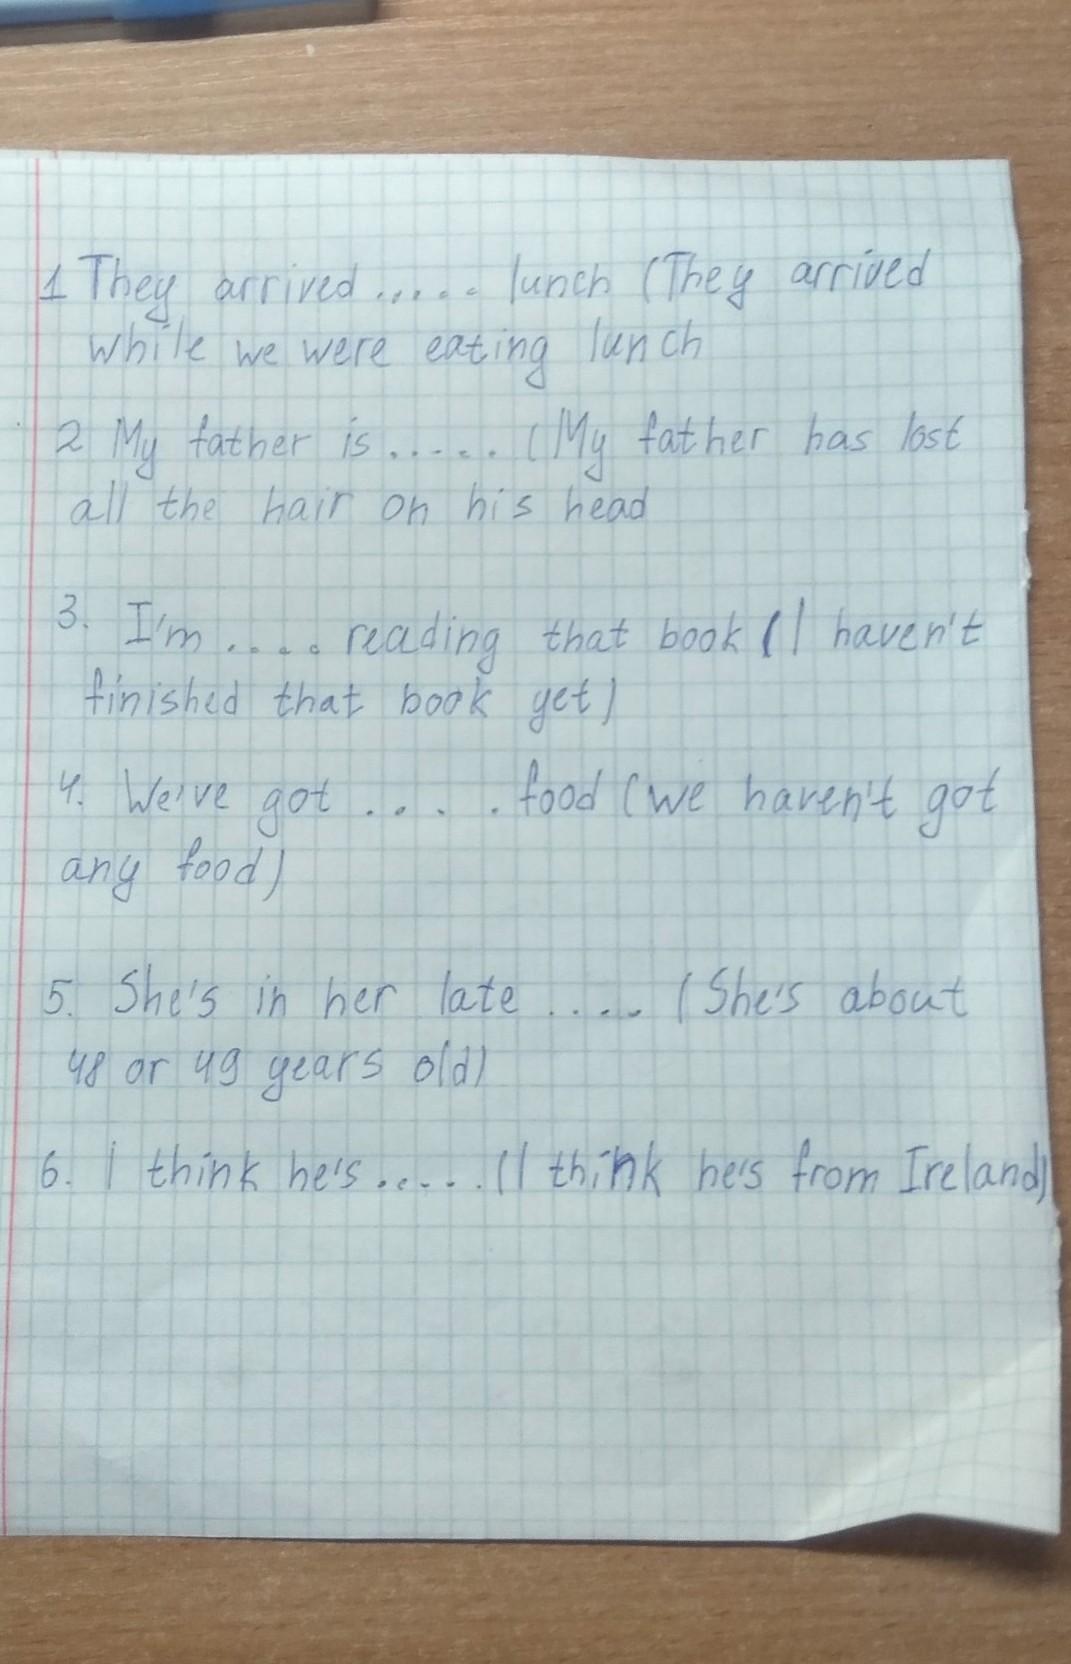 1 They arrived ..... lunch (They arrived
while we were eating lunch
2 My father is ..... (My father has lost
all the hair on his head
3. I'm .... reading that book (I haven't
finished that book yet)
4. We've got .... food (we haven't got
any food)
5. She's in her late .... (She's about
48 or 49 years old)
6. I think he's ..... (I think he's from Ireland)